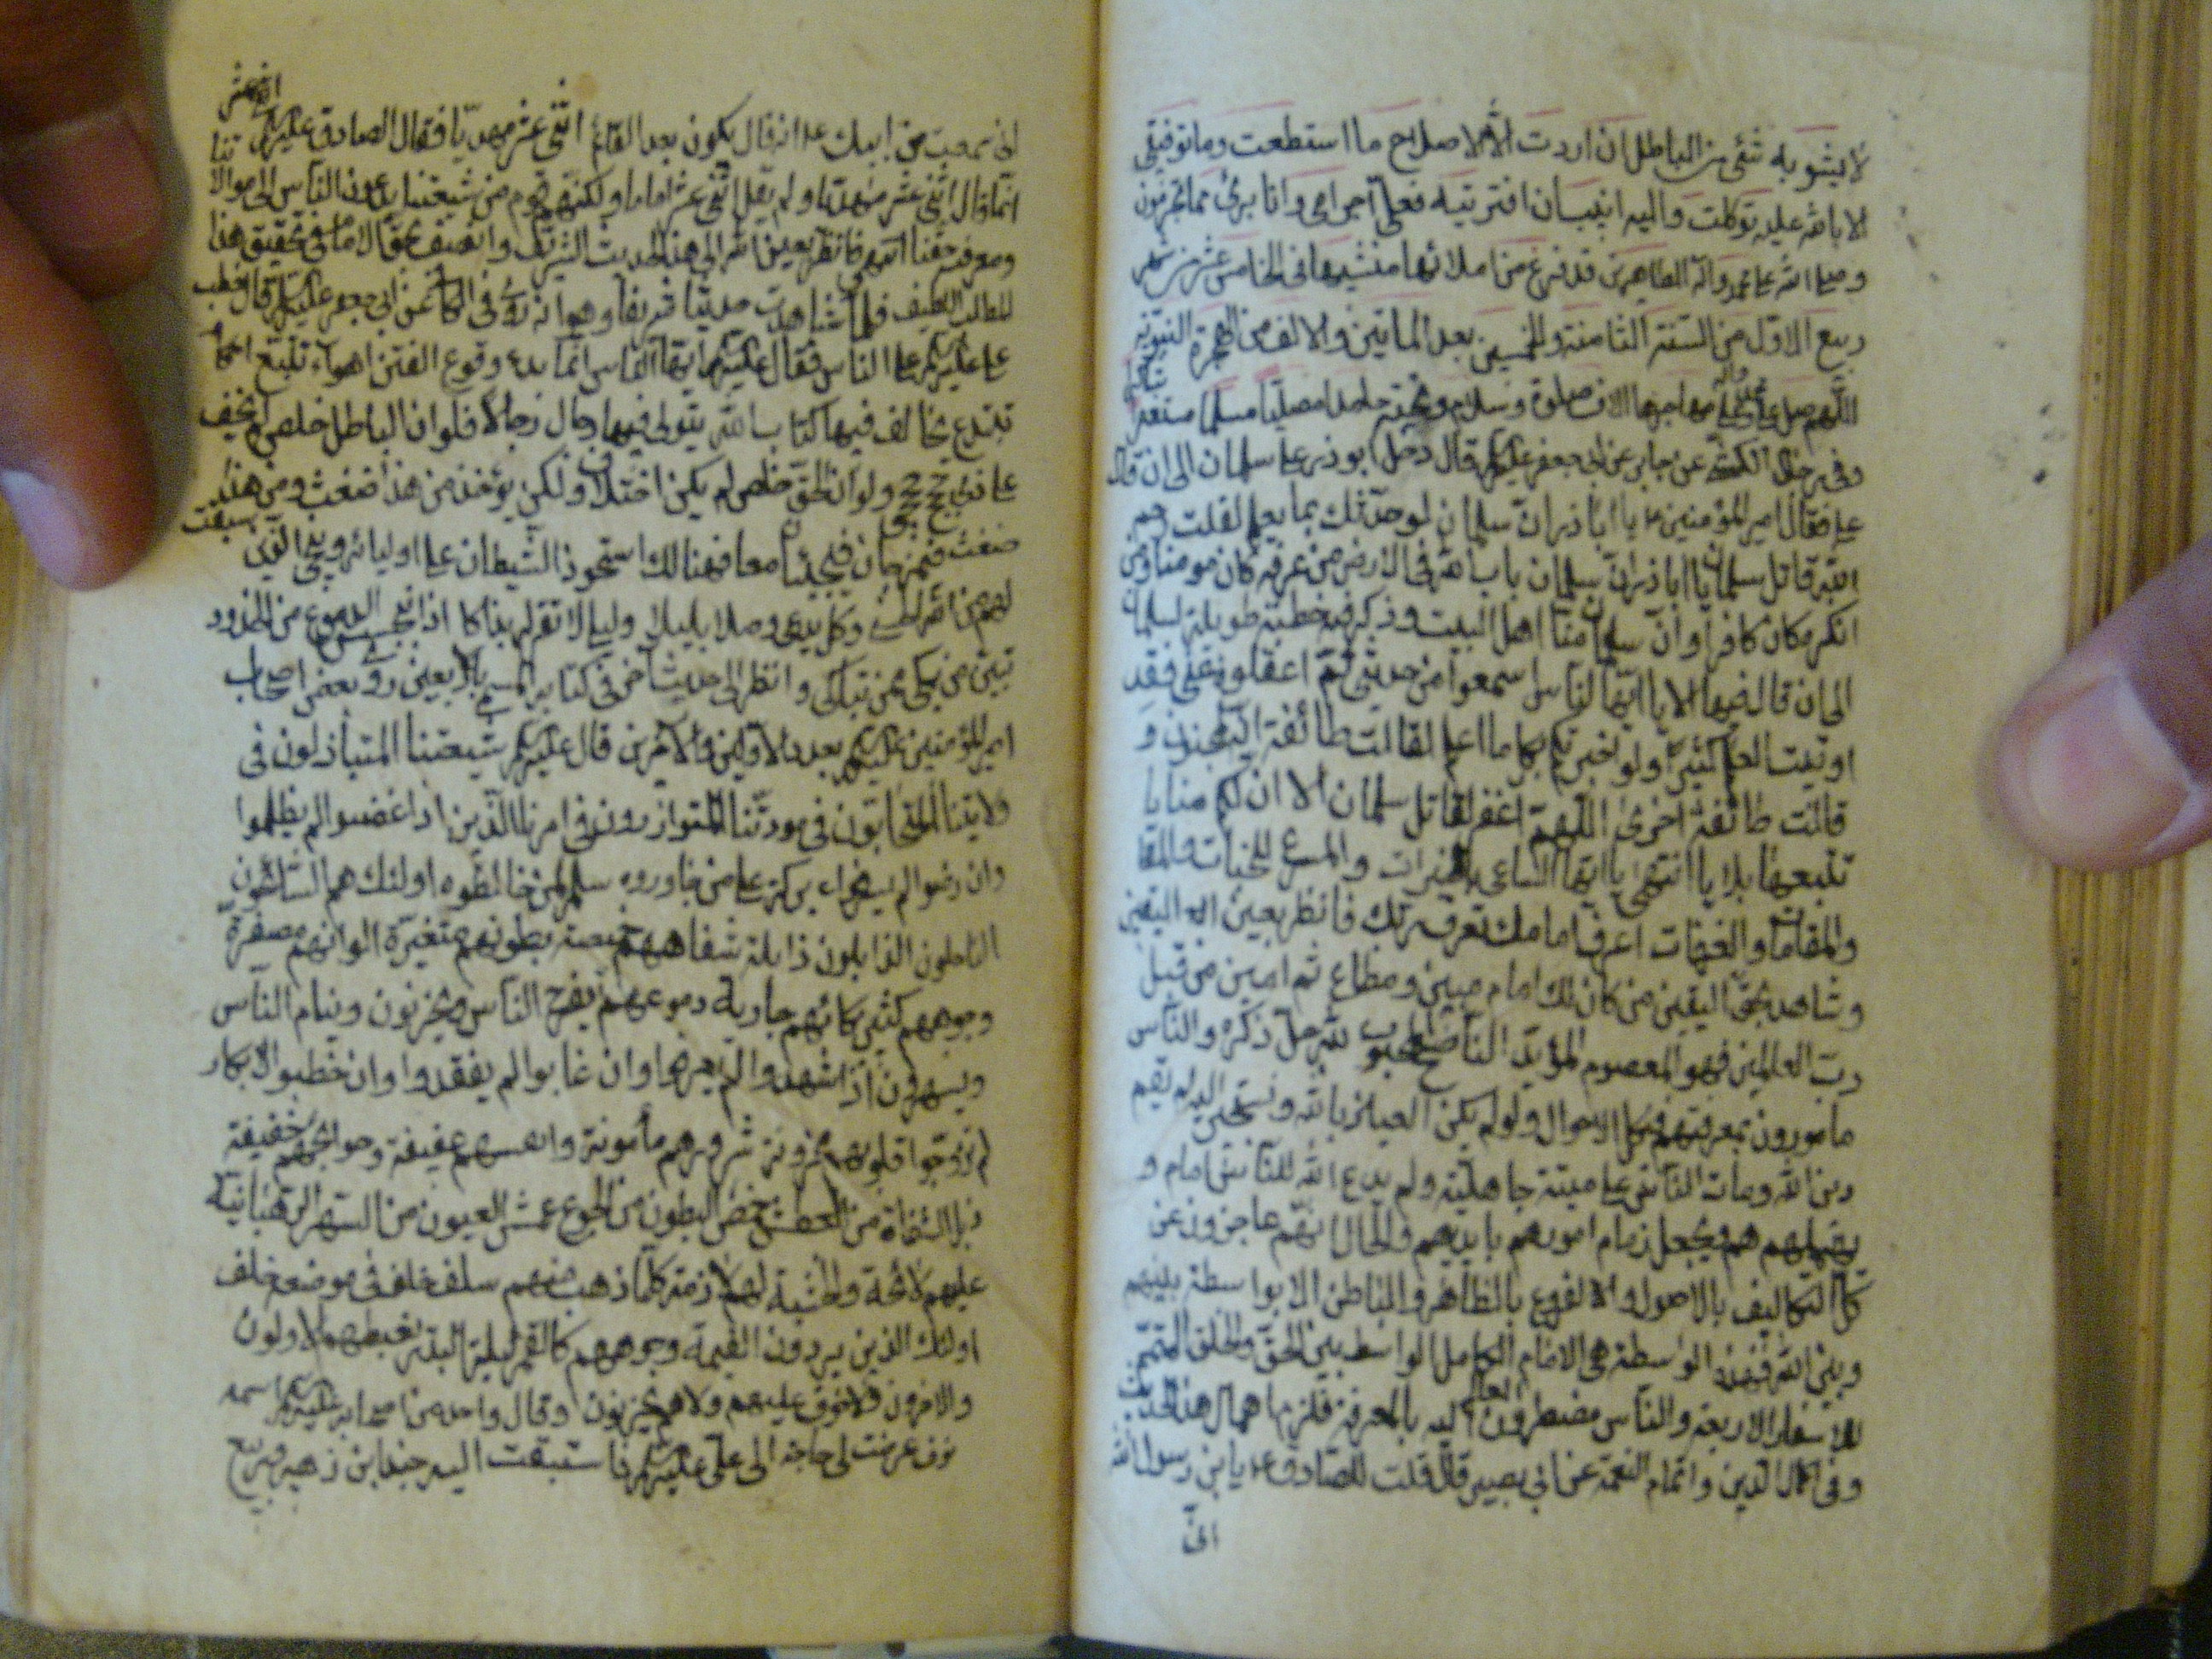 لا يشوبه شئ من الباطل ان اردت الا الاصلاح ما استطعت وما توفيقى
الا بالله عليه توكلت واليه انيب ان افتريته فعلى اجرامى وانا برئ مما تجرمون
وصلى الله على محمد وآله الطاهرين قد فرغ من املائها منشيها فى الخامس عشر من شهر
ربيع الاول من السنة الثامنة والخمسين بعد الماتين والالف من الهجرة النبوية
اللهم صل على مهاجرها الاف صلوة وسلام وتحية حامدا مصليا مسلما مستغفرا
وفى رجال الكشى عن جابر عن ابى جعفر عليه السلم قال دخل ابو ذر على سلمان الى ان قال
على فقال امير المؤمنين ع يا ابا ذر ان سلمان لو حدثك بما يعلم لقلت رحم
الله قاتل سلمان يا ابا ذر ان سلمان باب الله فى الارض من عرفه كان مومنا ومن
انكره كان كافرا وان سلمان منا اهل البيت وذكر فيه خطبة طويلة لسلمان
الى ان قال فيها الا يا ايها الناس اسمعوا من حديثى ثم اعقلوه عنى فقد
اوتيت العلم كثيرا ولو اخبرتكم بكل ما اعلم لقالت طائفة انه لمجنون و
قالت طائفة اخرى اللهم اغفر لقاتل سلمان الا ان لكم منايا
تتبعها بلايا انتهى يا ايها الساعى للخيرات والمسرع للجنات
والمقامات والغرفات اعرف امامك تعرف ربك فانظر بعين اليقين
وشاهد بحق اليقين من كان لك امام مبين ومطاع ثم امين من قبل
رب العالمين فهو المعصوم المؤيد الناصح لله جل ذكره والناس
مامورون بمعرفتهم فى كل الاحوال ولو لم يكن العياذ بالله ونستجير اليه لم يقم
دين الله ومات الناس على ميتة جاهلية ولم يدع الله للناس امام و
يهملهم هم ويجعل زمام امورهم بايديهم والحال انهم عاجزون عن
كل التكاليف بالاصول والفروع بالظاهر والباطن الا بواسطة بينهم
وبين الله فهذه الواسطة هى الامام الكامل الواسط بين الحق والخلق المتمم
للاسفار الاربعة والناس مضطرون اليه بالمعرفة هذا الحديث
وفى اكمال الدين واتمام النعمة عن ابى بصير قال قلت للصادق ع يا بن رسول الله
انى
انى سمعت من ابيك ع انه قال يكون بعد القائم اثنى عشر مهديا فقال الصادق عليه السلم
انما قال اثنى عشر مهديا ولم يقل اثنى عشر اماما ولكنهم قوم من شيعتنا يدعون الناس الى موالاتنا
ومعرفة حقنا انتهى فانظر بعين الله الى هذا الحديث الشريف وانصف فى تحقيق هذا
المطلب اللطيف فلما شاهدت حديثا شريفا وهو انه روى فى الكافى عن ابى جعفر عليه السلم قال خطب
على عليه السلم على الناس فقال عليه السلم ايها الناس انما بدء وقوع الفتن اهواء تتبع احكام
تبتدع يخالف فيها كتاب الله يتولى فيها رجال رجالا فلو ان الباطل خلص لم يخف
على ذى حجى ولو ان الحق خلص لم يكن اختلاف ولكن يوخذ من هذا ضغث ومن هذا
ضغث فيمزجان فيجيئان معا فهنالك استحوذ الشيطان على اوليائه ونجى الذين سبقت
لهم من الله الحسنى وكل يدعى وصلا بليلى وليلى لا تقر لهم بذاكا اذا انبجست الدموع من الخدود
تبين من بكى ممن تباكى وانظر الى حديث آخر فى كتاب المسمى بالاربعين روى بعض اصحاب
امير المؤمنين عليه السلم بعدد الاولين والآخرين قال عليه السلم شيعتنا المتباذلون فى
ولايتنا المتحابون فى مودتنا المتوازرون فى امرنا الذين اذا غضبوا لم يظلموا
وان رضوا لم يسرفوا بركة على من جاوروه سلم لمن خالطوه اولئك هم السائحون
الناحلون الذابلون ذابلة شفاههم خميصة بطونهم متغيرة الوانهم مصفرة
وجوههم كثير بكائهم جارية دموعهم يفرح الناس ويحزنون وينام الناس
ويسهرون اذا شهدوا لم يعرفوا وان غابوا لم يفقدوا وان خطبوا الابكار
لم يزوجوا قلوبهم محزونة شرورهم مأمونة وانفسهم عفيفة وحوائجهم خفيفة
ذبل الشفاة من العطش خمص البطون من الجوع عمش العيون من السهر الرهبانية
عليهم لائحة والخشية لهم لازمة كلما ذهب منهم سلف خلف فى موضعه خلف
اولئك الذين يردون القيمة وجوههم كالقمر ليلة البدر يغبطهم الاولون
والاخرون فلا خوف عليهم ولا هم يحزنون وقال واحد من اصحابه عليه السلم اسمه
نوف عرضت لى حاجة الى على عليه السلم فاستتبعت اليه جندب بن زهير وربيع